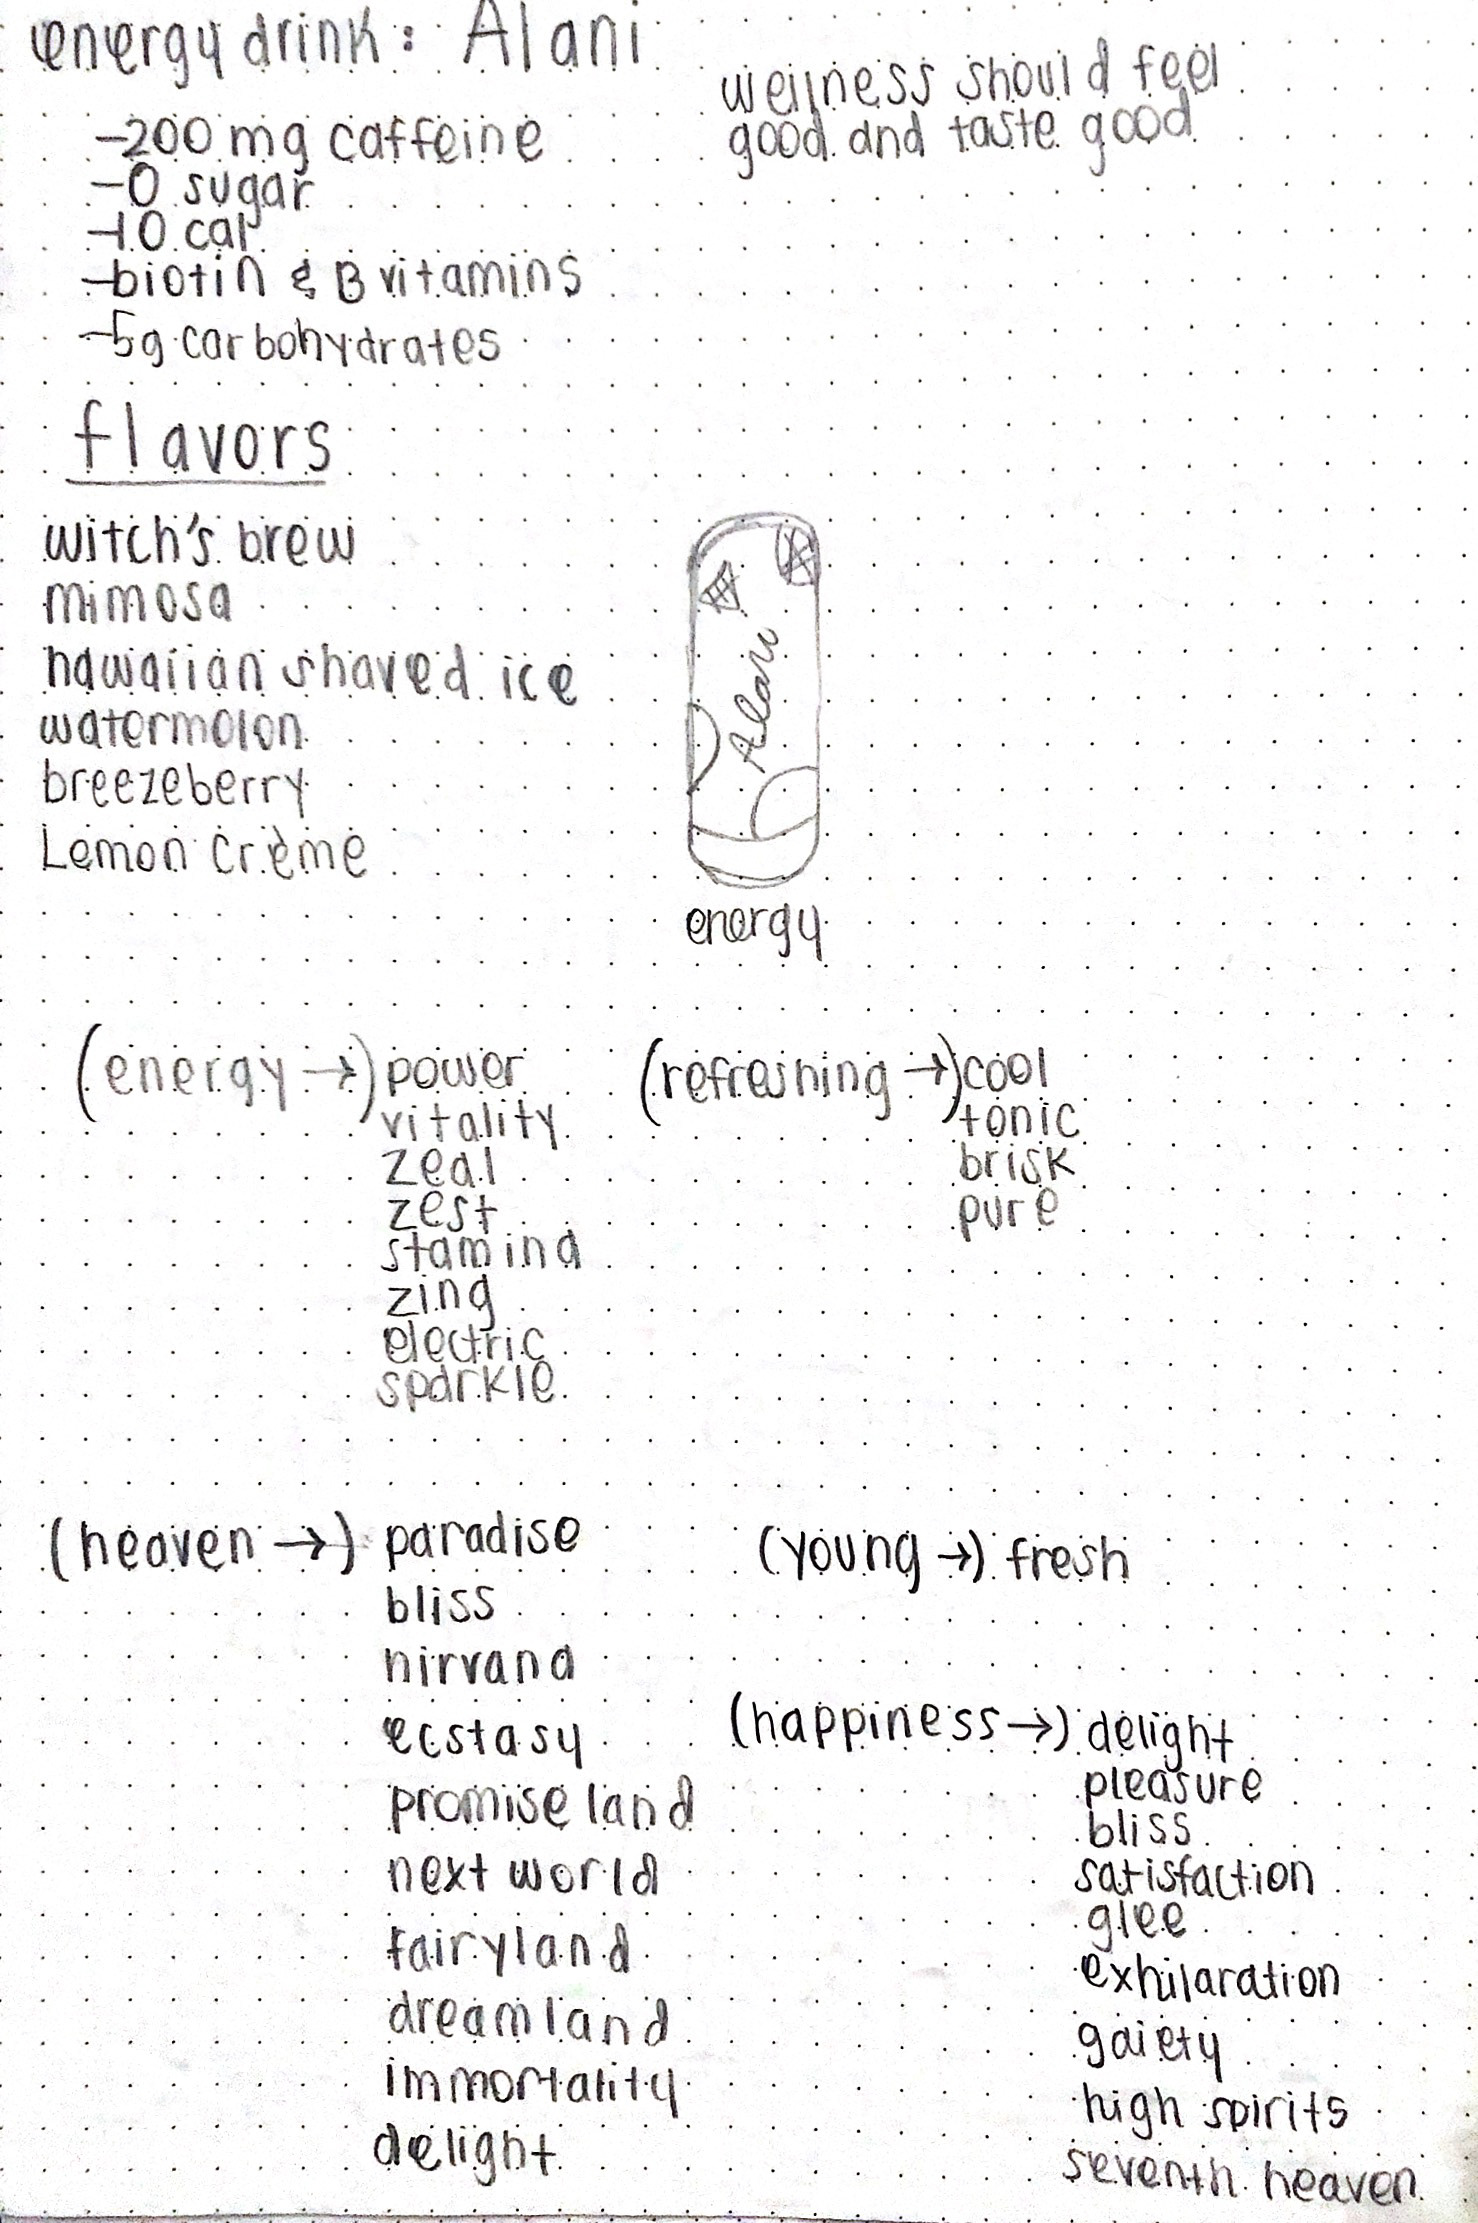 energy drink: Alani
wellness should feel
good and taste good
-200 mg caffeine
-0 sugar
-10 cal
-biotin & B vitamins
-5g carbohydrates
flavors
witch's brew
mimosa
hawaiian shaved ice
watermelon
breezeberry
Lemon Crème
Alani
energy
(energy →) power
vitality
zeal
zest
stamina
zing
electric
sparkle
(refreshing →) cool
tonic
brisk
pure
(heaven →) paradise
bliss
nirvana
ecstasy
promise land
next world
fairyland
dreamland
immortality
delight
(young →) fresh
(happiness →) delight
pleasure
bliss
satisfaction
glee
exhilaration
gaiety
high spirits
seventh heaven